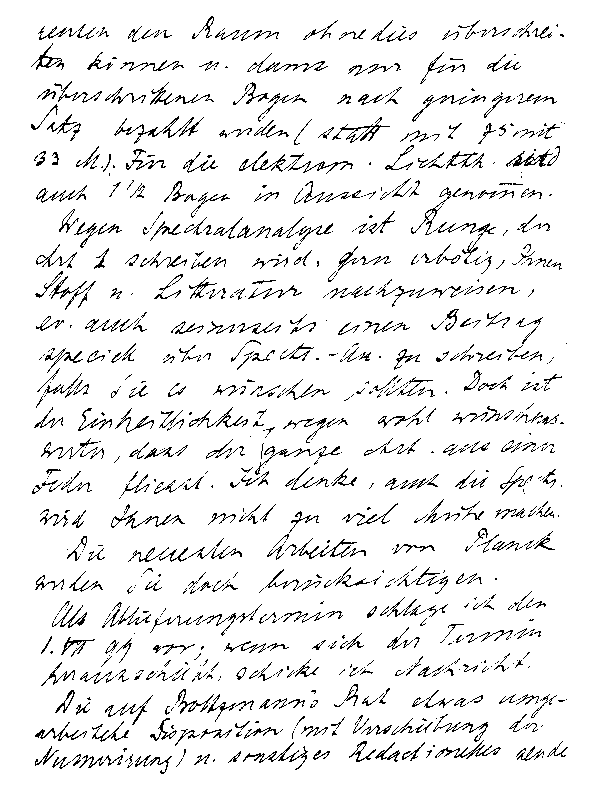 renten den Raum ohnedies überschrei-
ten können u. dann nur für die
überschrittenen Bogen nach geringerem
Satz bezahlt werden (statt mit 75 mit
33 M.). Für die elektrom. Lichtth. sind
auch 1 1/2 Bogen in Aussicht genommen.
Wegen Spectralanalyse ist Runge, der
Art 2 schreiben wird, gern erbötig, Ihnen
Stoff u. Litteratur nachzuweisen,
ev. auch seinerseits einen Beitrag
speciell über Spectr.-An. zu schreiben,
falls Sie es wünschen sollten. Doch ist
der Einheitlichkeit wegen wohl wünschens-
werter, dass der ganze Art. aus einer
Feder fliesst. Ich denke, auch die Spectr.
wird Ihnen nicht zu viel Mühe machen.
Die neuesten Arbeiten von Planck
werden Sie doch berücksichtigen.
Als Ablieferungstermin schlage ich den
1. VII 99 vor; wenn sich der Termin
herausschiebt, schicke ich Nachricht.
Die auf Boltzmann's Rat etwas umge-
arbeitete Disposition (mit Verschiebung der
Numerirung) u. sonstiges Redactionelles sende